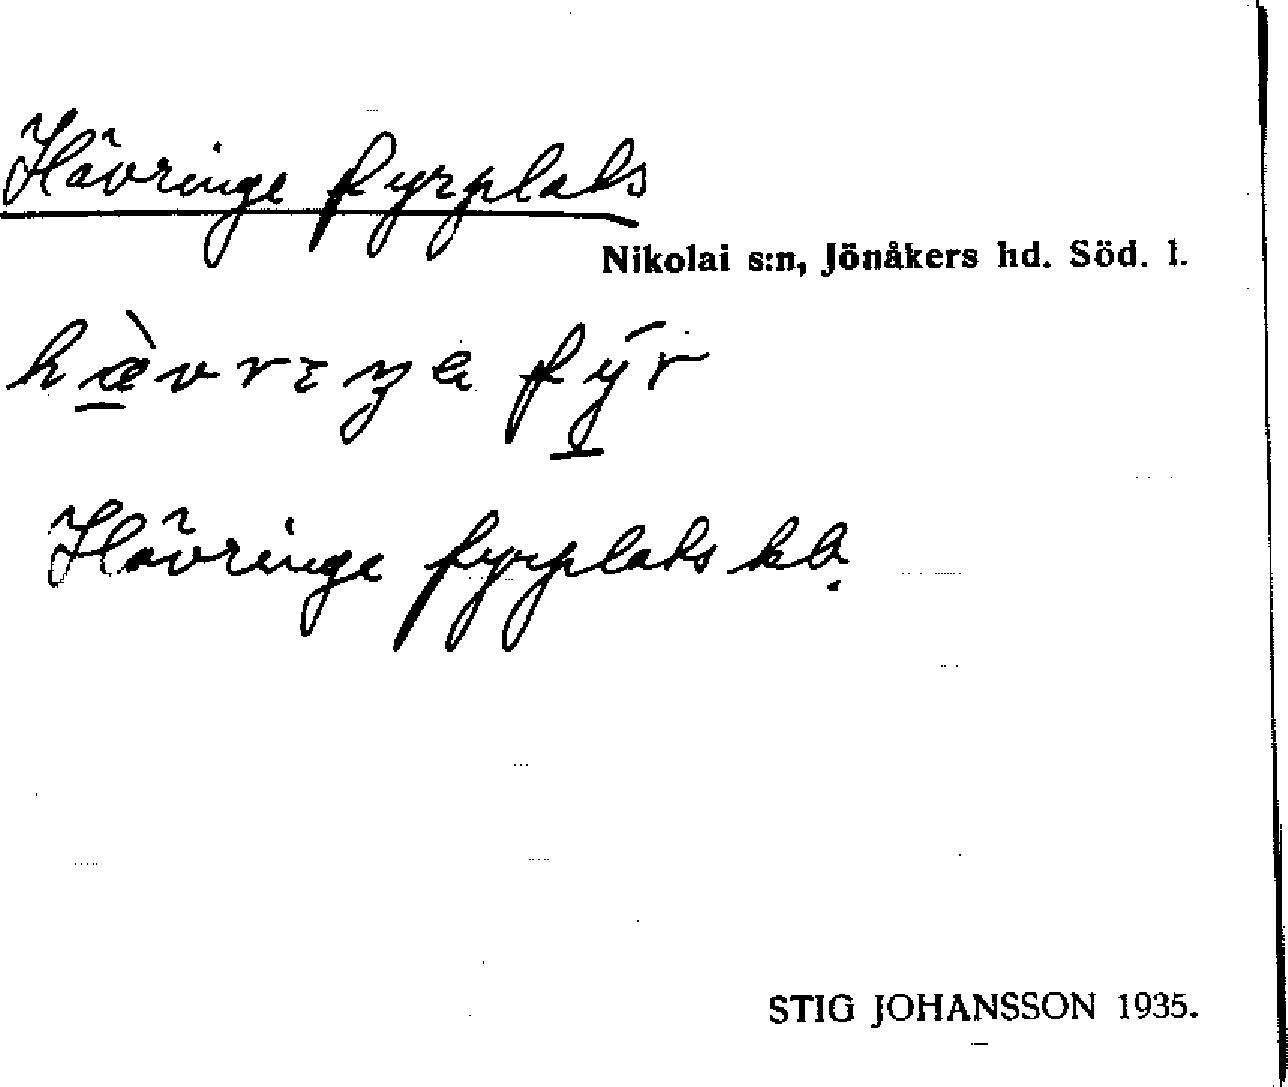 Hävringe fyrplats
Nikolai s:n, Jönåkers hd. Söd. l.
hæ̀vrɪŋe fýr
Hävringe fyrplats kb.
STIG JOHANSSON 1935.